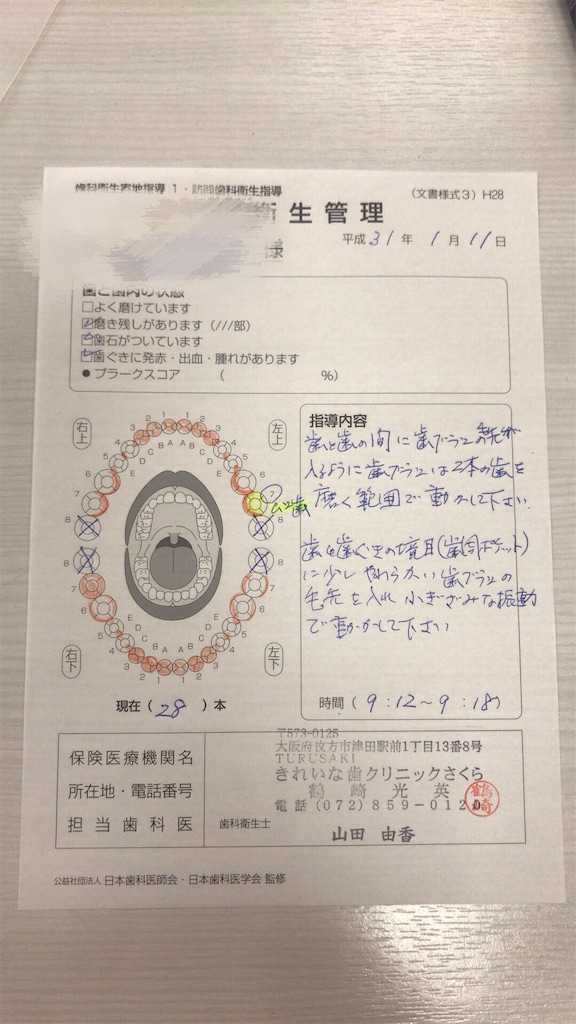 歯科衛生実地指導 1・訪問歯科衛生指導
(文書様式3) H28
衛生管理
平成 31 年 1 月 11 日
様
歯と歯肉の状態
□よく磨けています
☑磨き残しがあります (///部)
☑歯石がついています
☑歯ぐきに発赤・出血・腫れがあります
● プラークスコア ( %)
右上
左上
2 1 1 2
3 3
4 4
5 5
6 6
7 7
8 8
A A
B B
C C
D D
E E
ムシ歯
8 8
7 7
6 6
5 5
4 4
3 3
2 1 1 2
E E
D D
C C
B A A B
右下
左下
現在 ( 28 ) 本
指導内容
歯と歯の間に歯ブラシの毛先が
入るように歯ブラシは2本の歯を
磨く範囲で動かして下さい.
歯と歯ぐきの境目(歯周ポケット)
に少しやわらかい歯ブラシの
毛先を入れ小きざみな振動
で動かして下さい
時間 ( 9:12~9:18 )
保険医療機関名
所在地・電話番号
担当歯科医
〒573-0125
大阪府枚方市津田駅前1丁目13番8号
TURUSAKI
きれいな歯クリニックさくら
鶴崎光英
電話 (072) 859-0120
鶴崎
歯科衛生士
山田 由香
公益社団法人 日本歯科医師会・日本歯科医学会 監修